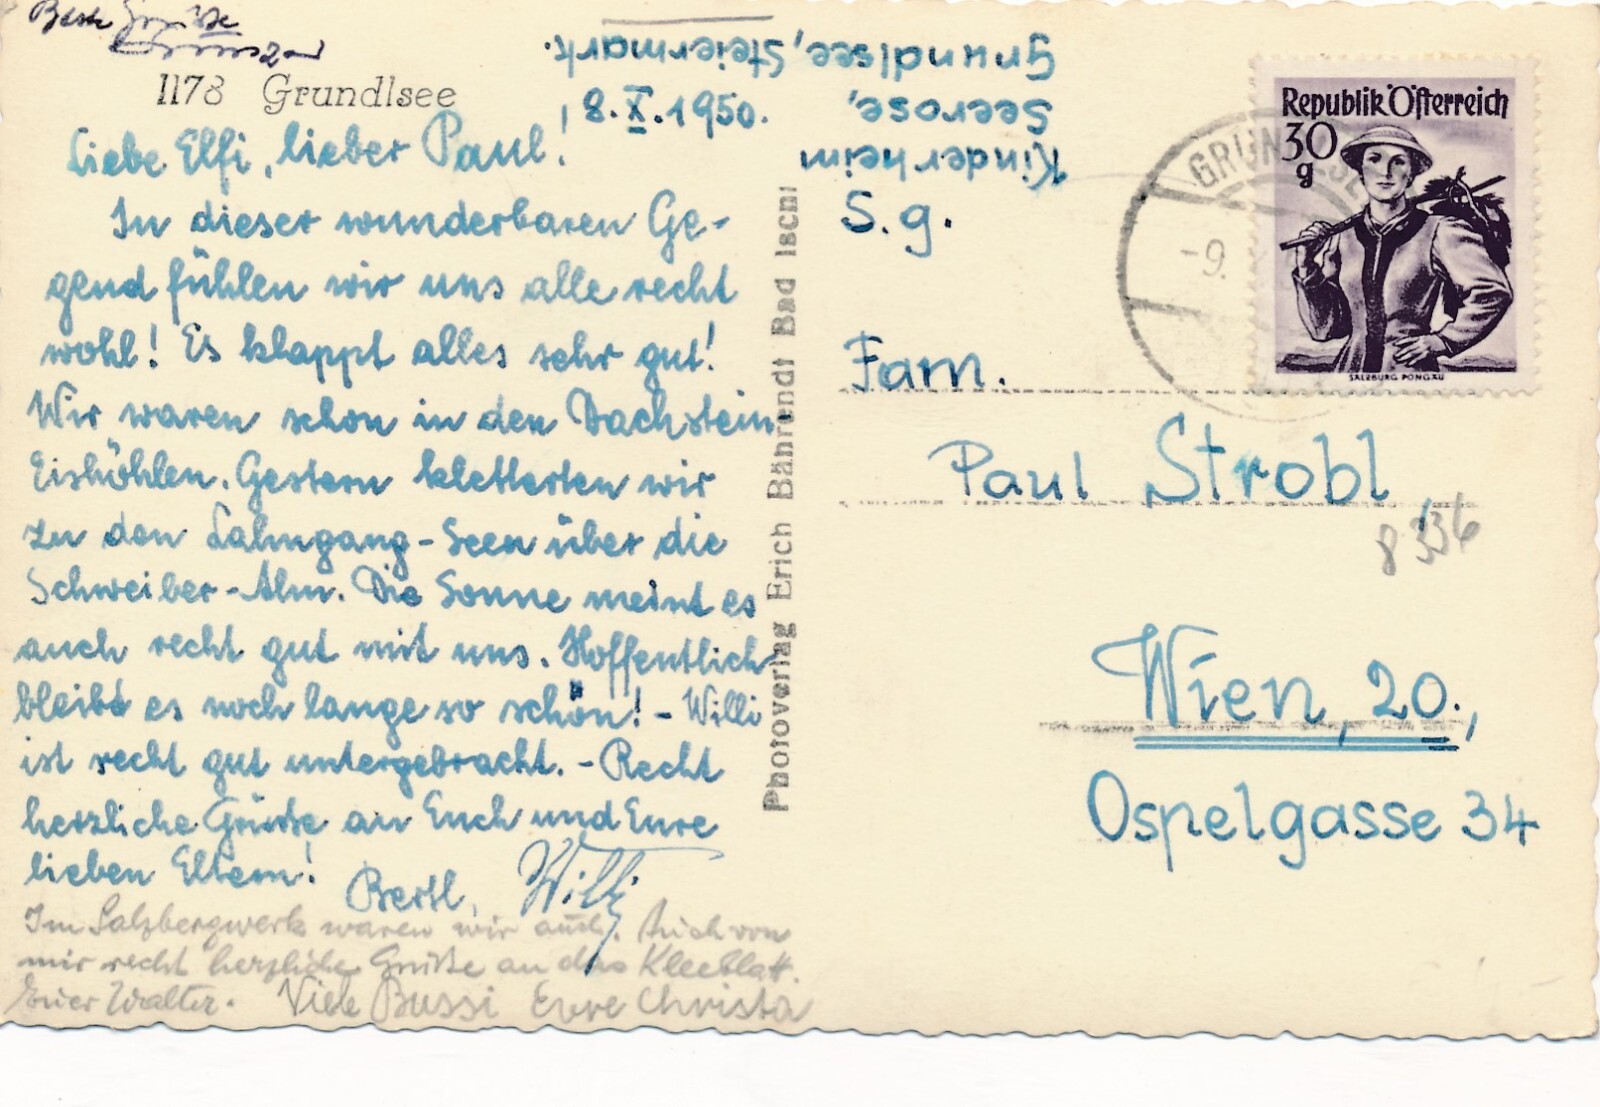 Beste Grüße
1178 Grundlsee
8.X.1950.
Kinderheim
Seerose,
Grundlsee, Steiermark.
Liebe Elfi, lieber Paul!
In dieser wunderbaren Ge-
gend fühlen wir uns alle recht
wohl! Es klappt alles sehr gut!
Wir waren schon in den Dachstein
Eishöhlen. Gestern kletterten wir
zu den Lahngang-Seen über die
Schweiber-Alm. Die Sonne meint es
auch recht gut mit uns. Hoffentlich
bleibt es noch lange so schön! - Willi
ist recht gut untergebracht. - Recht
herzliche Grüße an Euch und Eure
lieben Eltern!
Bertl, Willi
Im Salzbergwerk waren wir auch. Auch von
mir recht herzliche Grüße an das Kleeblatt.
Euer Walter. Viele Bussi Eure Christa
Photoverlag Erich Bährendt Bad Ischl
S. g.
Fam.
Paul Strobl,
8336
Wien, 20.,
Ospelgasse 34
Republik Österreich
30
g
SALZBURG PONGAU
-9.